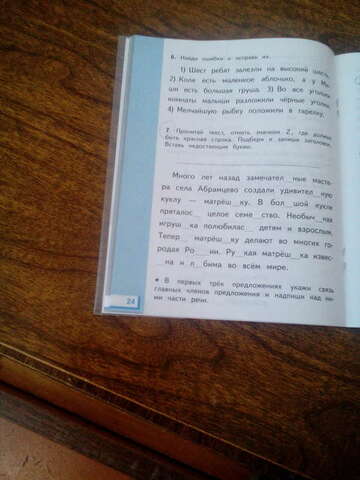 6. Найди ошибки и исправь их.
1) Шест ребят залезли на высокий шесть.
2) Коле есть маленькое яблочко, а у Ми-
ши есть большая груша. 3) Во все уголки
комнаты малыши разложили чёрные уголки.
4) Мелчайшую рыбку положили в тарелку.
7. Прочитай текст, отметь значком Z, где должна
быть красная строка. Подбери и запиши заголовок.
Вставь недостающие буквы.
Много лет назад замечател_ные масте-
ра села Абрамцево создали удивител_ную
куклу — матрёш_ку. В бол_шой кукле
прятал_с_ целое семе_ство. Необыч_ная
игруш_ка полюбилас_ детям и взрослым.
Тепер_ матрёш_ку делают во многих го-
родах Ро__ии. Ру_кая матрёш_ка извес-
_на и л_бима во всём мире.
• В первых трёх предложениях укажи связь
главных членов предложения и надпиши над ни-
ми части речи.
24